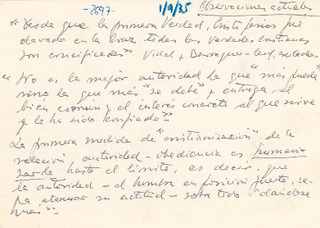 -2697-
1/9/85
Observaciones actuales
"Desde que la primera Verdad, Cristo Jesús fue
clavado en la cruz todas las verdades cristianas
son crucificadas" Vidal y Barraquer - Card.
"No es la mejor autoridad la que "más puede"
sino la que más "se debe" y entrega al
bien común y al interés concreto al que sirve
y le ha sido confiado"
La primera medida de "cristianización" de la
relación, autoridad - obediencia es
hasta el límite, es decir, que
la autoridad - el hombre en posición fuerte, se-
pa atenuar su actitud - sobre todo